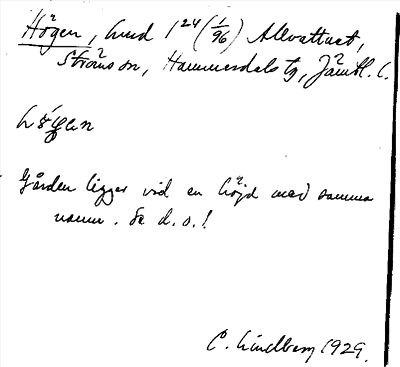 Högen, hmd 1²⁴ (1/96) Allvattnet,
Ströms sn, Hammerdals tg, Jämtl. l.
hǿgen
Gården ligger vid en höjd med samma
namn. Se d. o.!
C. Lindberg 1929.